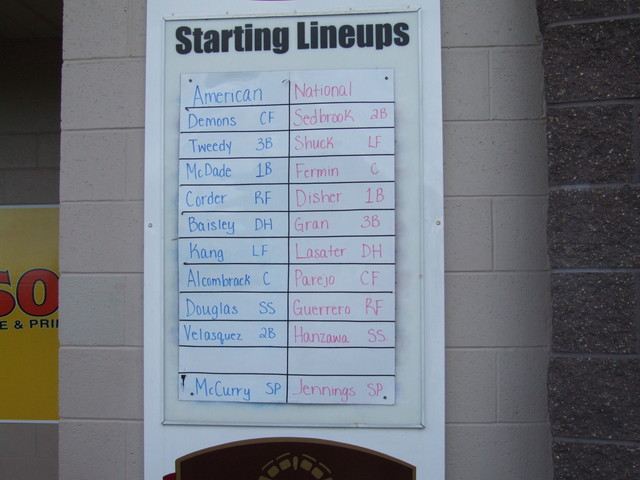 Starting Lineups
American National
Demons CF Sedbrook 2B
Tweedy 3B Shuck LF
McDade 1B Fermin C
Corder RF Disher 1B
Baisley DH Gran 3B
Kang LF Lasater DH
Alcombrack C Parejo CF
Douglas SS Guerrero RF
Velasquez 2B Hanzawa SS
McCurry SP Jennings SP
SO
E & PRI